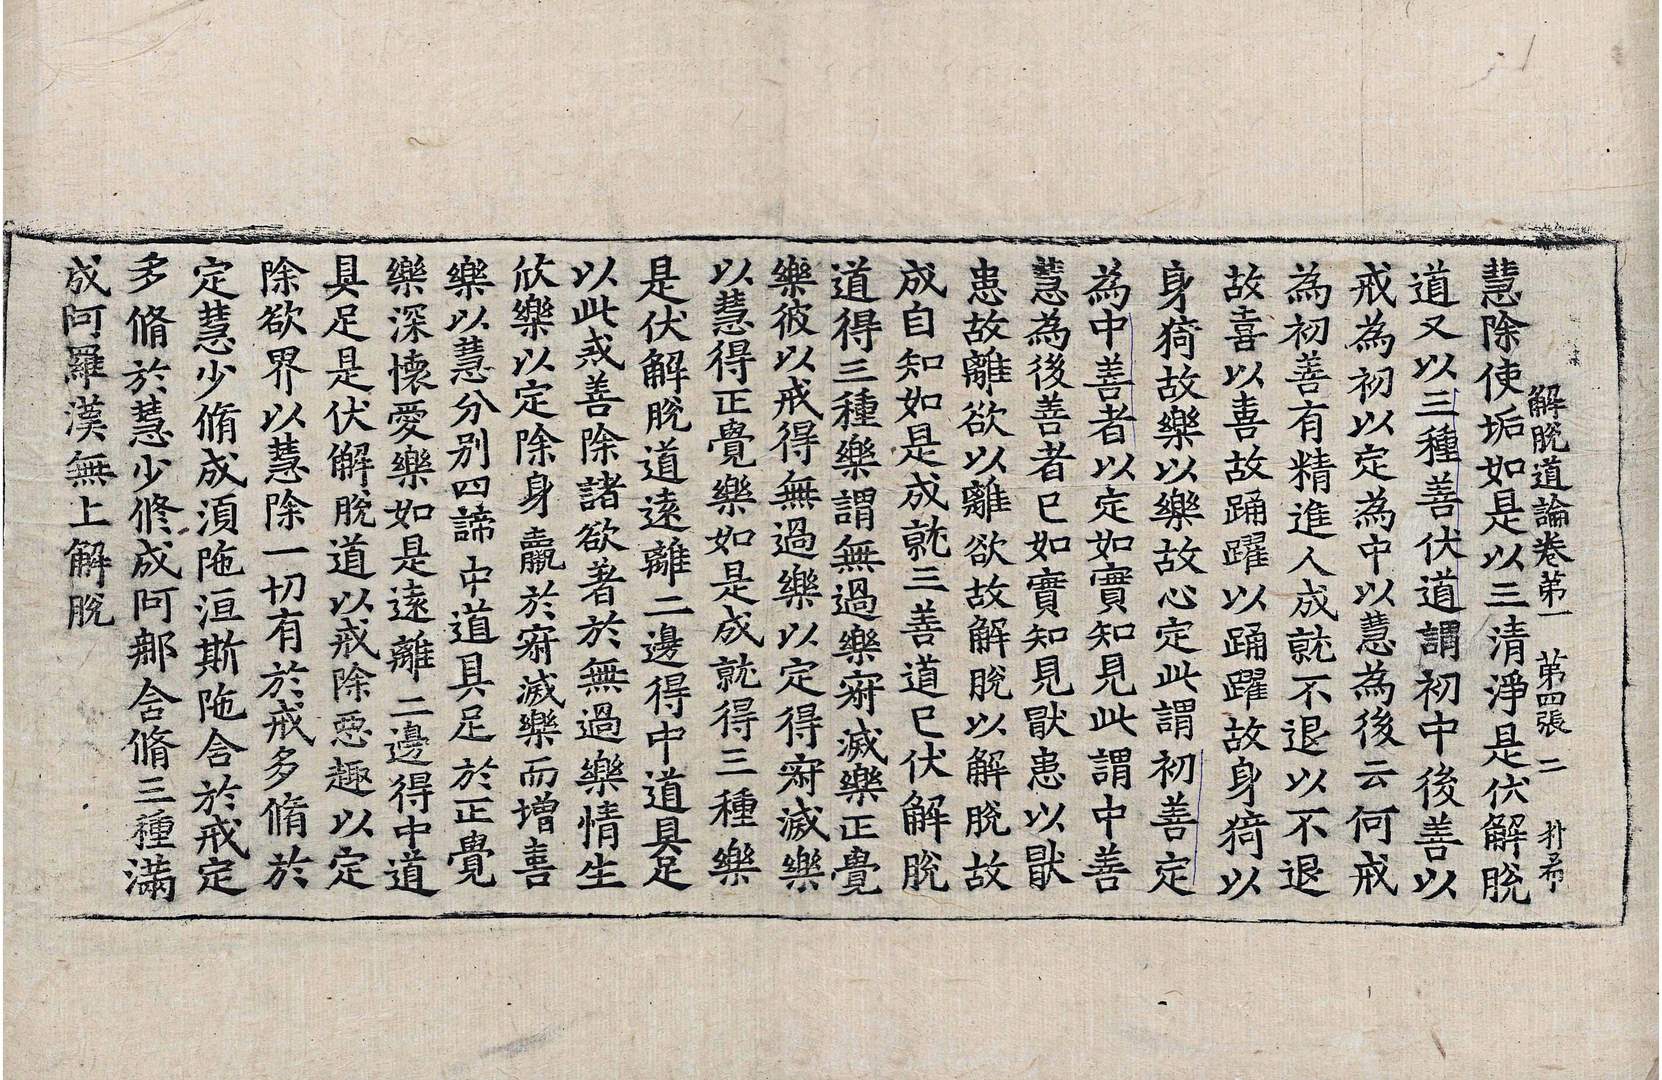 解脫道論卷第一　第四張　二
慧除使垢如是以三清淨是伏解脫
道又以三種善伏道謂初中後善以
戒為初以定為中以慧為後云何戒
為初善有精進人成就不退以不退
故喜以喜故踊躍以踊躍故身猗以
身猗故樂以樂故心定此謂初善定
為中善者以定如實知見此謂中善
慧為後善者已如實知見猒患以猒
患故離欲以離欲故解脫以解脫故
成自知如是成就三善道已伏解脫
道得三種樂謂無過樂寂滅樂正覺
樂彼以戒得無過樂以定得寂滅樂
以慧得正覺樂如是成就得三種樂
是伏解脫道遠離二邊得中道具足
以此戒善除諸欲著於無過樂情生
欣樂以定除身羸於寂滅樂而增喜
樂以慧分別四諦中道具足於正覺
樂深懷愛樂如是遠離二邊得中道
具足是伏解脫道以戒除惡趣以定
除欲界以慧除一切有於戒多脩於
定慧少脩成須陁洹斯陁含於戒定
多脩於慧少修成阿那含脩三種滿
成阿羅漢無上解脫